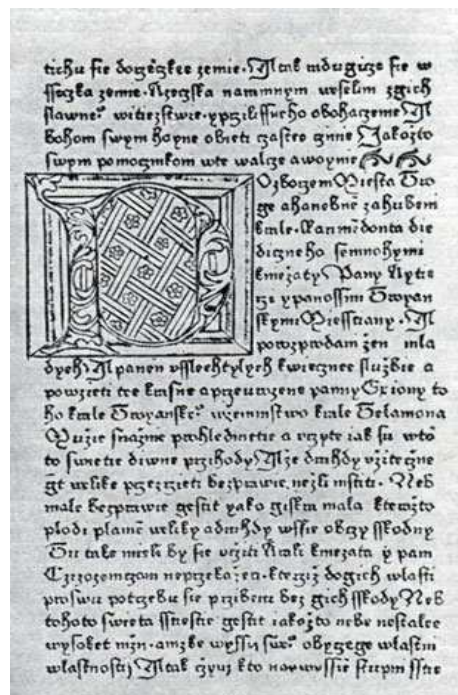 tichu sie dorzeczkee zemie. A tak sie w
ssiczka zemie. Rzeczka weselim zgich
slawne° witiezstwie. obohaczenie A
bohom swym hoyne obieti czasteo czinie Jakožto
swym pomocznikom wte walcze awoynie
Ozborzem Miesta Tro
ge ahanebnē zahubeni
krale. Lanmēdonta die
diczneho semnohymi
knežaty Pany Rytie
rzi ypanossimi Troyan
skymi Miessczany. A
žen mla
dych A panen vsslechtylych kwiecznee službie a
powzieti tee krasne aprzeurozene panny Exiony to
ho krale Troyanske° krale Telamona
Muzie snaznie prohlednietie a vrzyte iak su wtō
to swietie diwne przihody Aže drahdy vžiteczne
gt welike przezrzieti bezprawie. nežli mstiti. Neb
male bezprawie gestit yako giskra mala kteražto
plodi plamē weliky adrahdy wssie obczy sskodny
Tit take mieli by sie vcziti Krali knežata y pani
neprzeka kterziž dogich wlasti
proswu potrzebu sie bez gich sskody Neb
tohoto swieta sstiestie gestit iakožto nebe nestalee
wysoket mžn. amže wyssij obyczege wlastni
wlastnosti A tak czym kto naywyssie stupni sstie